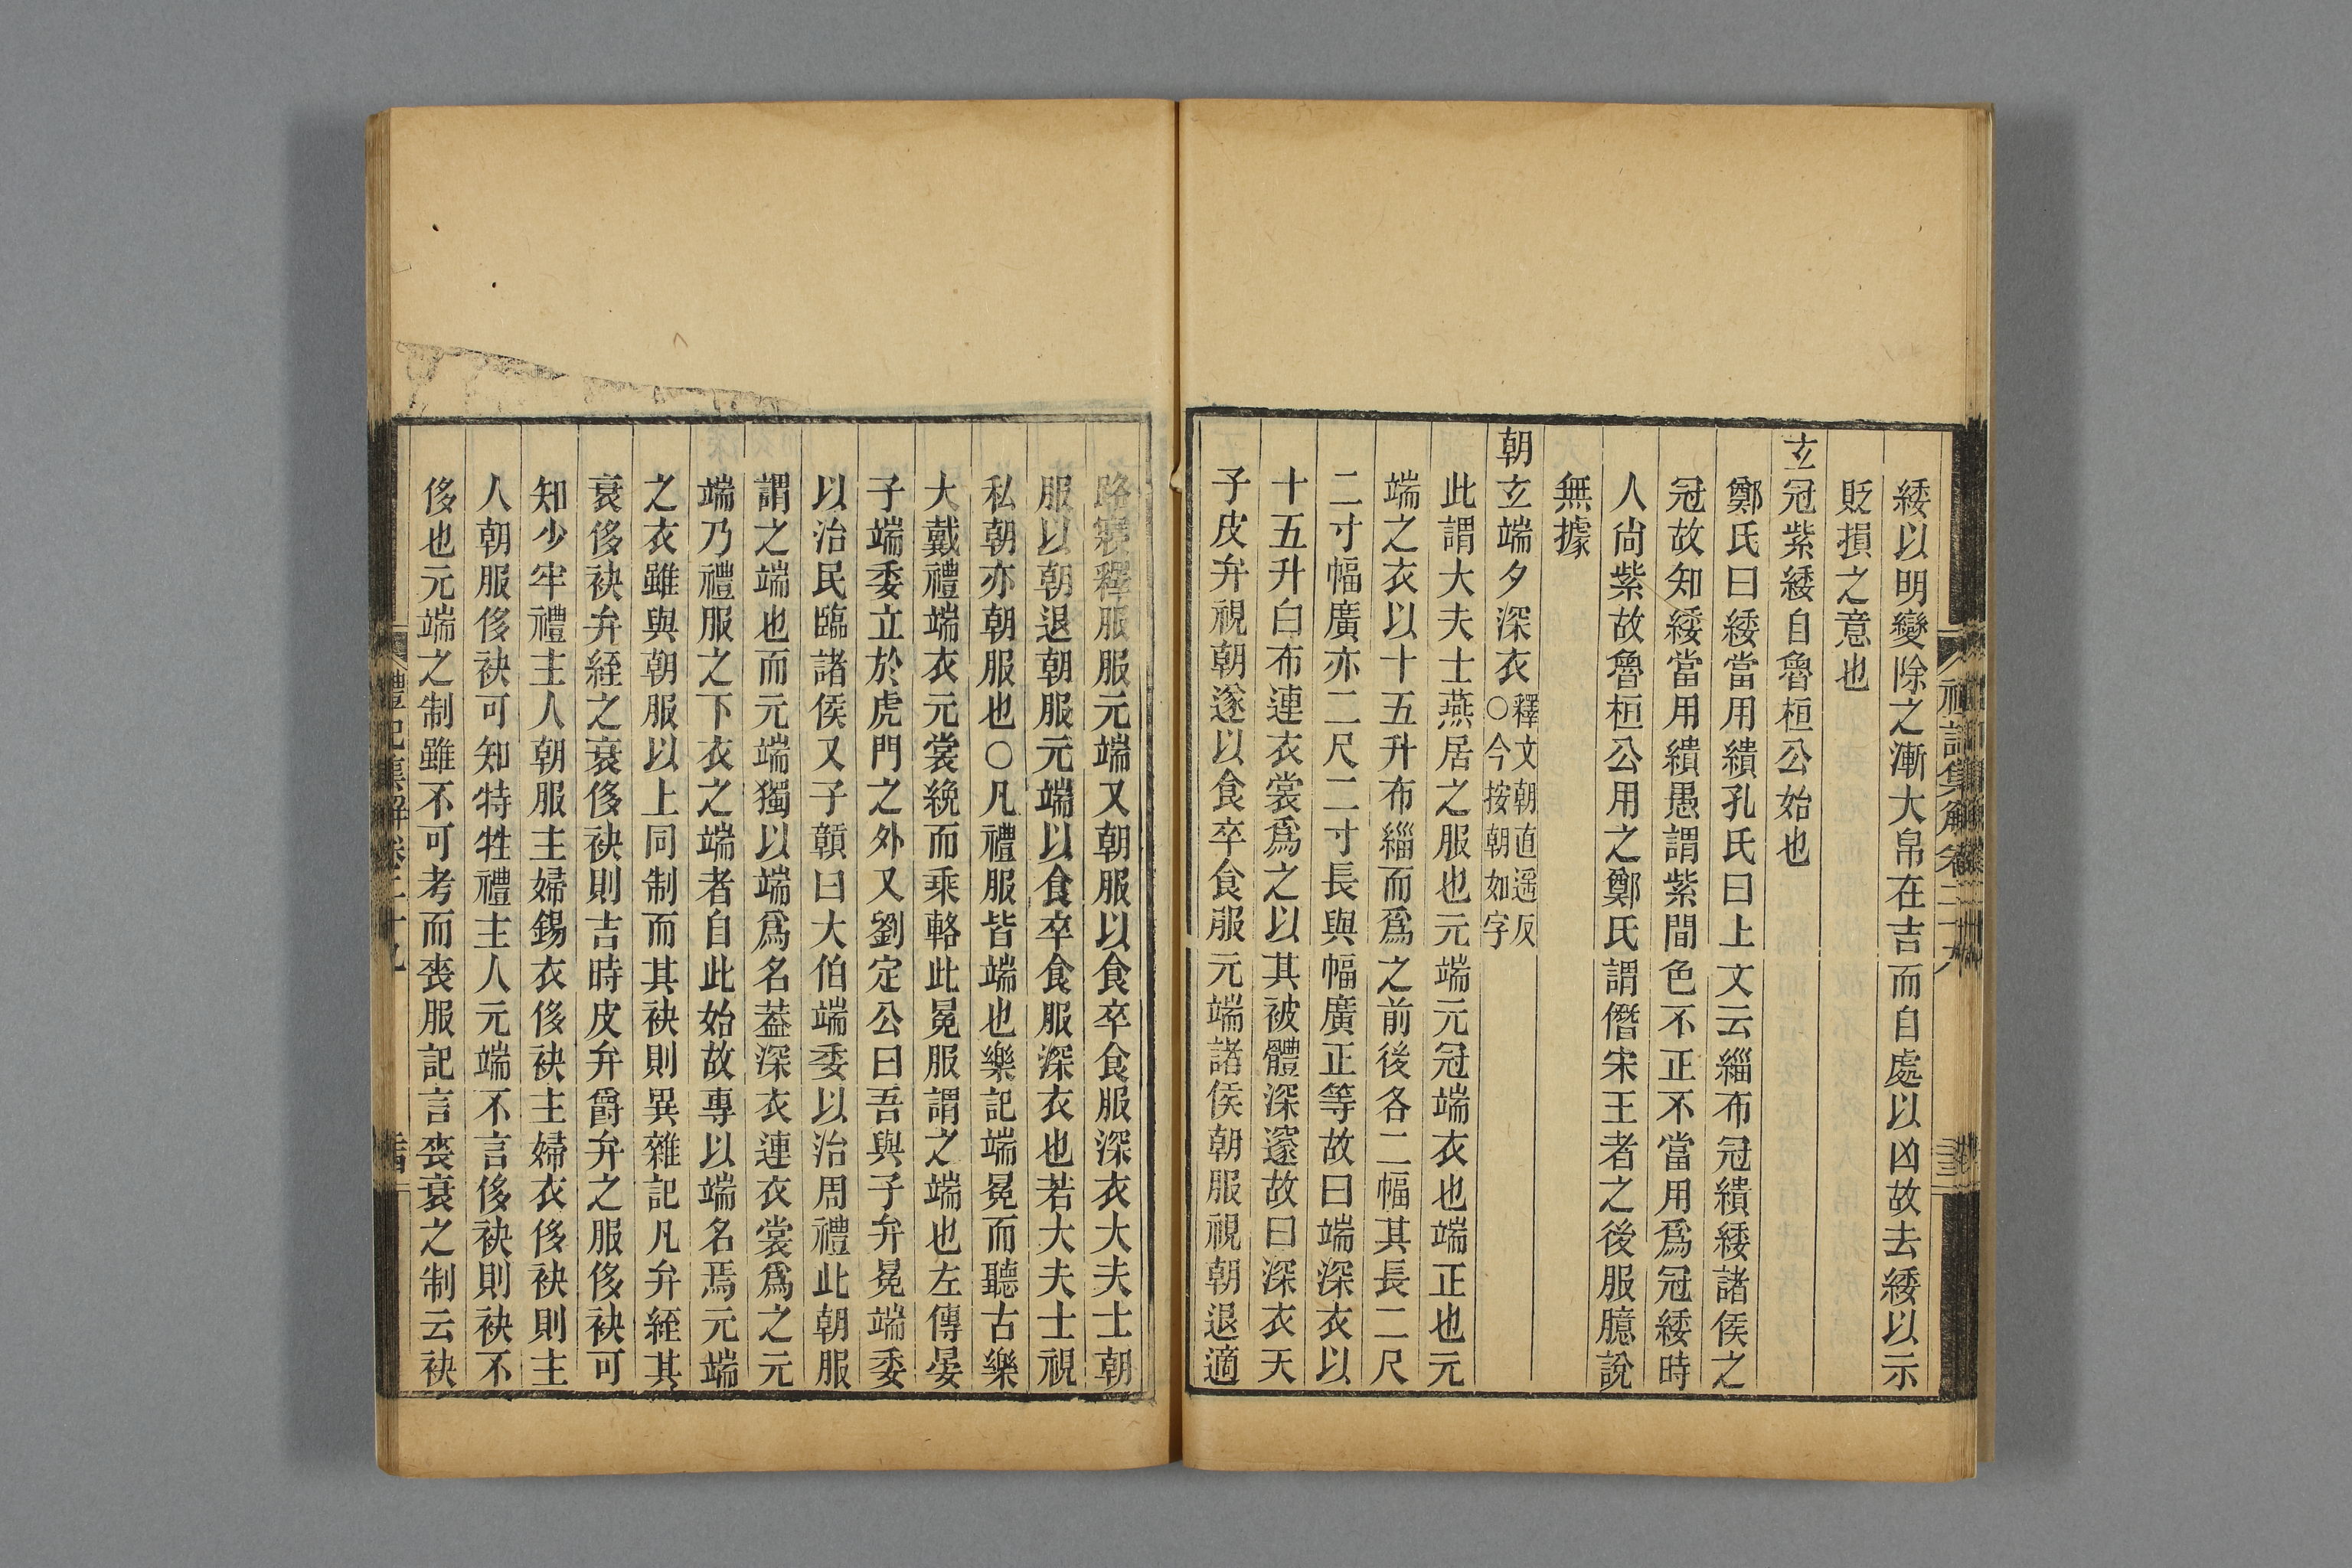 緌以明變除之漸大帛在吉而自處以凶故去緌以示
貶損之意也
玄冠紫緌自魯桓公始也
鄭氏曰緌當用繢孔氏曰上文云緇布冠繢緌諸侯之
冠故知緌當用繢愚謂紫間色不正不當用爲冠緌時
人尚紫故魯桓公用之鄭氏謂僭宋王者之後服臆說
無據
朝玄端夕深衣釋文朝直遥反○今按朝如字
此謂大夫士燕居之服也元端元冠端衣也端正也元
端之衣以十五升布緇而爲之前後各二幅其長二尺
二寸幅廣亦二尺二寸長與幅廣正等故曰端深衣以
十五升白布連衣裳爲之以其被體深邃故曰深衣天
子皮弁視朝遂以食卒食服元端諸侯朝服視朝退適
路寢釋服服元端又朝服以食卒食服深衣大夫士朝
服以朝退朝服元端以食卒食服深衣也若大夫士視
私朝亦朝服也○凡禮服皆端也樂記端冕而聽古樂
大戴禮端衣元裳絻而乘輅此冕服謂之端也左傳晏
子端委立於虎門之外又劉定公曰吾與子弁冕端委
以治民臨諸侯又子贛曰大伯端委以治周禮此朝服
謂之端也而元端獨以端爲名葢深衣連衣裳爲之元
端乃禮服之下衣之端者自此始故專以端名焉元端
之衣雖與朝服以上同制而其袂則異雜記凡弁絰其
衰侈袂弁絰之衰侈袂則吉時皮弁爵弁之服侈袂可
知少牢禮主人朝服主婦錫衣侈袂主婦衣侈袂則主
人朝服侈袂可知特牲禮主人元端不言侈袂則袂不
侈也元端之制雖不可考而喪服記言喪衰之制云袂
禮記集解卷二十九